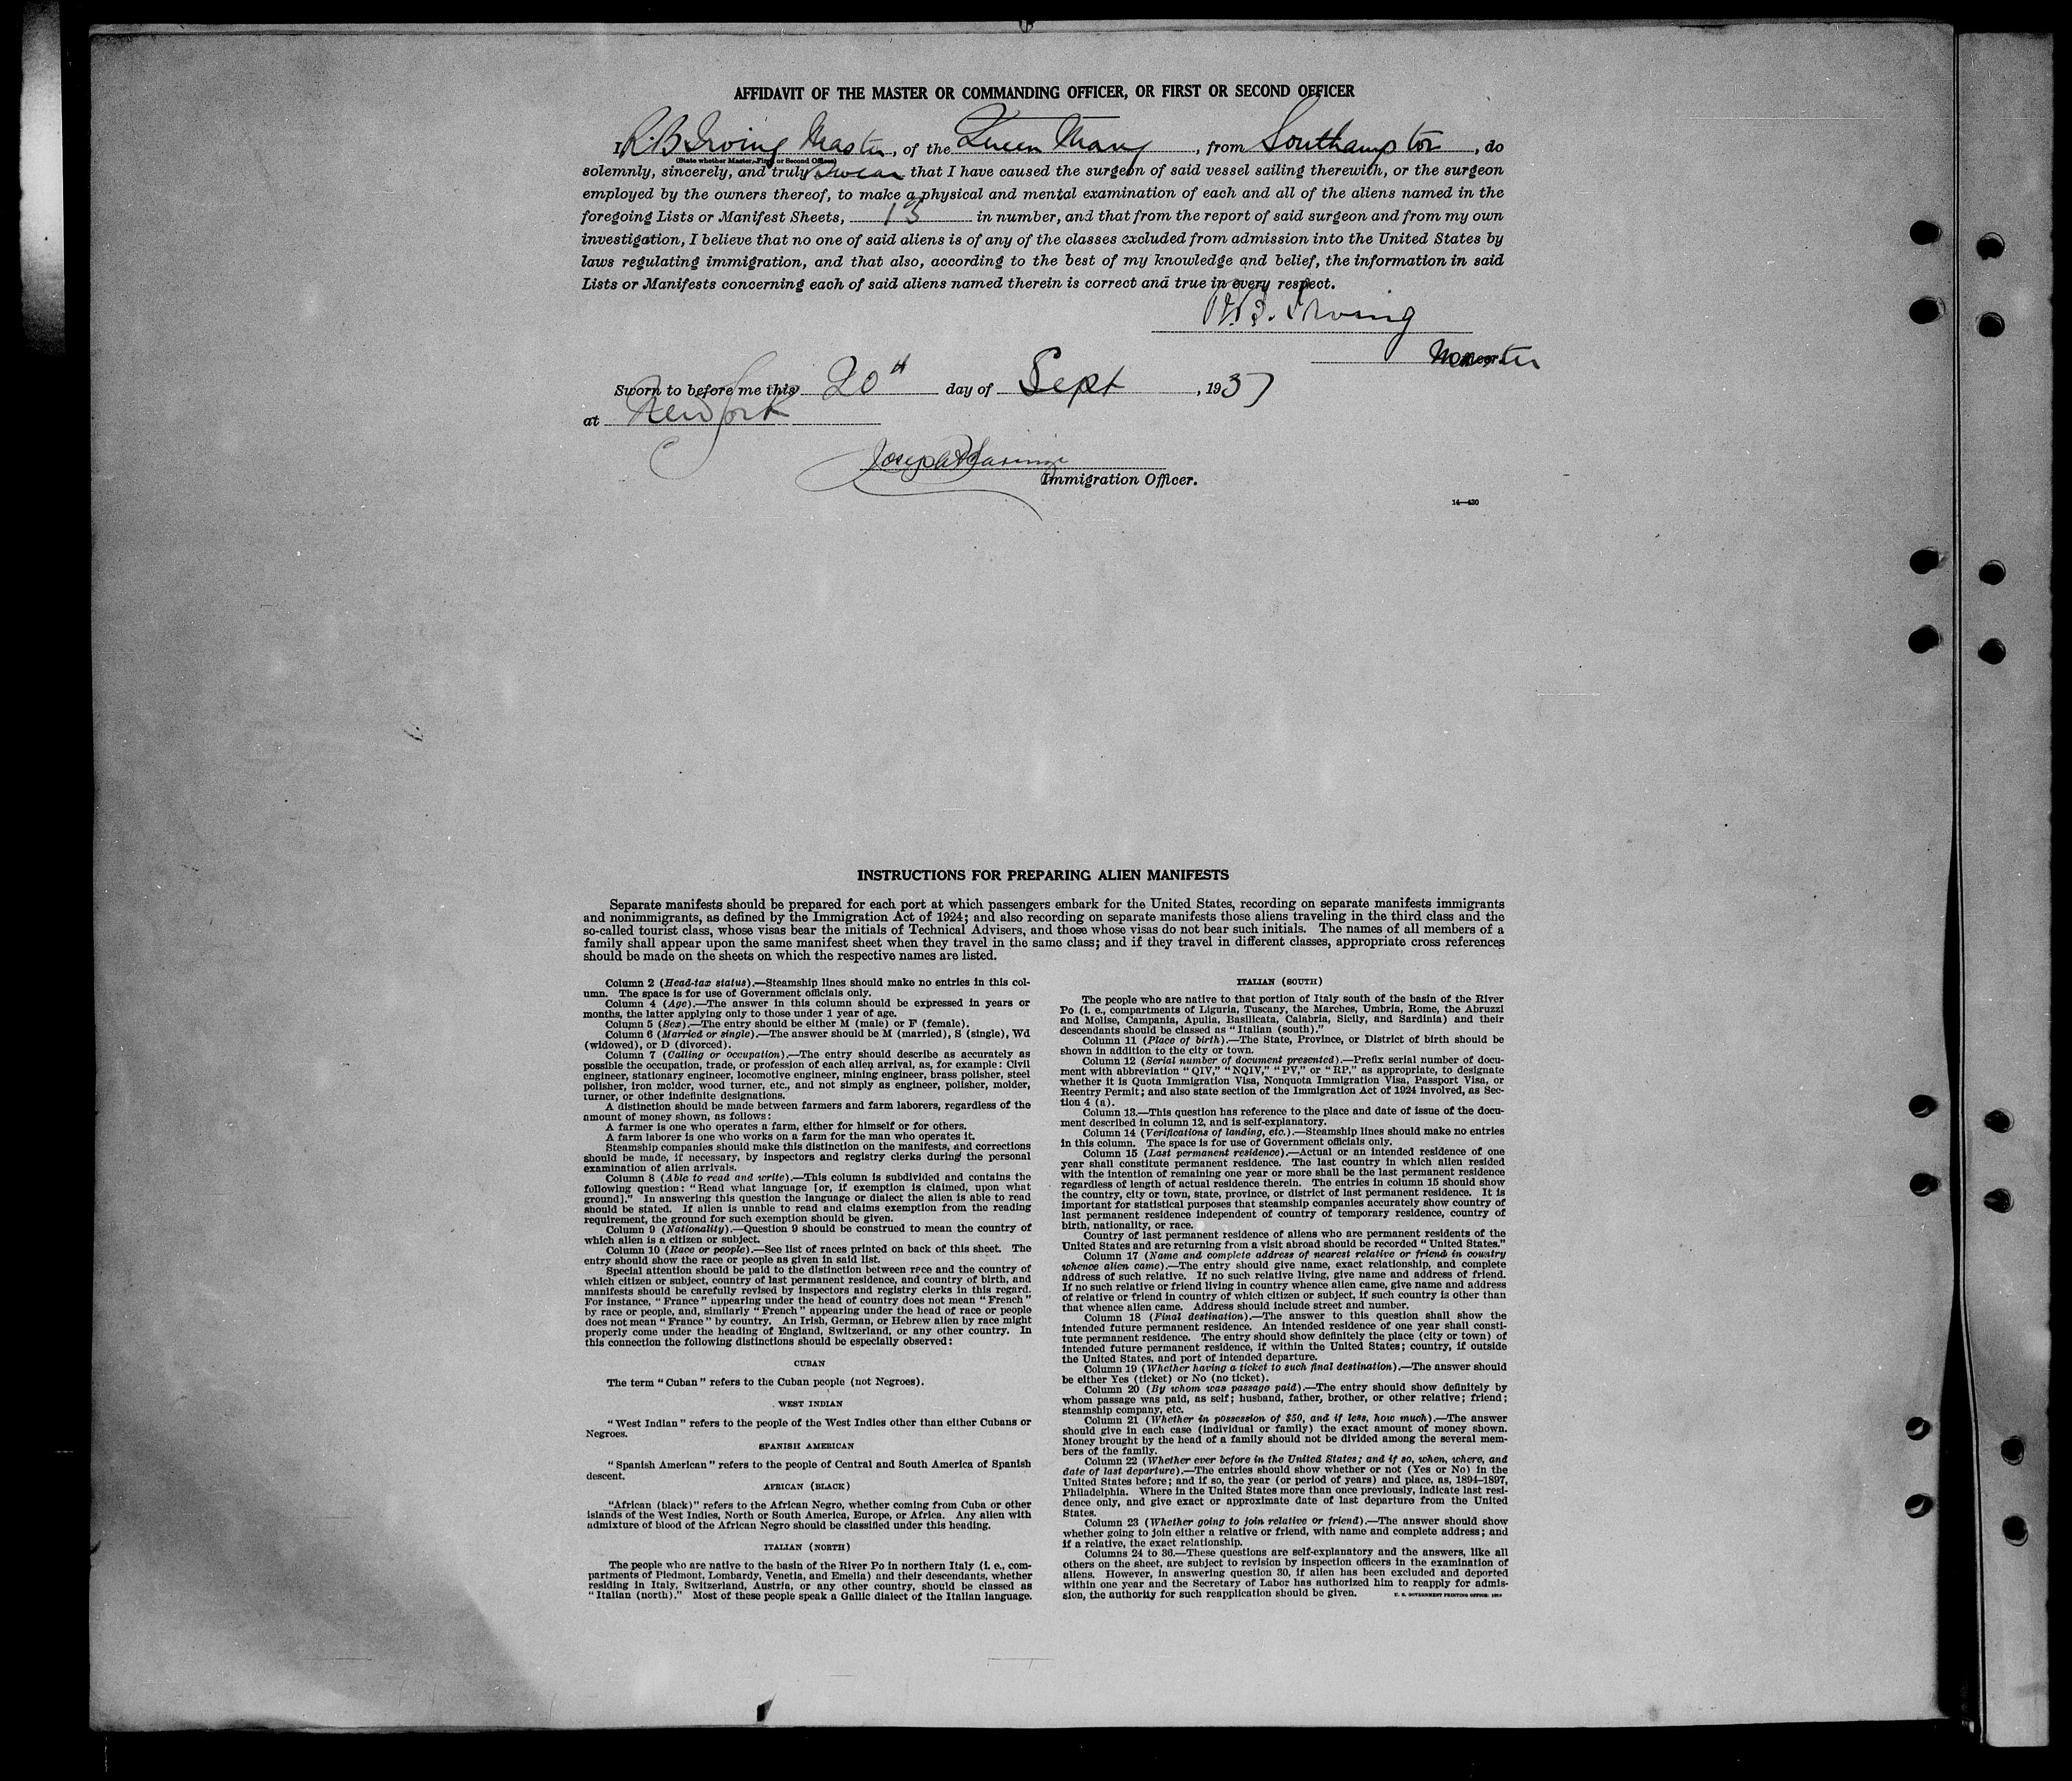 AFFIDAVIT OF THE MASTER OR COMMANDING OFFICER, OR FIRST OR SECOND OFFICER
I, R.B. Irving Master, of the Queen Mary, from Southampton, do
(State whether Master, First or Second Officer)
solemnly, sincerely, and truly swear that I have caused the surgeon of said vessel sailing therewith, or the surgeon
employed by the owners thereof, to make a physical and mental examination of each and all of the aliens named in the
foregoing Lists or Manifest Sheets, 13 in number, and that from the report of said surgeon and from my own
investigation, I believe that no one of said aliens is of any of the classes excluded from admission into the United States by
laws regulating immigration, and that also, according to the best of my knowledge and belief, the information in said
Lists or Manifests concerning each of said aliens named therein is correct and true in every respect.
R.B. Irving
Master
Sworn to before me this 20th day of Sept, 1937
at New York
Joseph
Immigration Officer.
14—430
INSTRUCTIONS FOR PREPARING ALIEN MANIFESTS
Separate manifests should be prepared for each port at which passengers embark for the United States, recording on separate manifests immigrants
and nonimmigrants, as defined by the Immigration Act of 1924; and also recording on separate manifests those aliens traveling in the third class and the
so-called tourist class, whose visas bear the initials of Technical Advisers, and those whose visas do not bear such initials. The names of all members of a
family shall appear upon the same manifest sheet when they travel in the same class; and if they travel in different classes, appropriate cross references
should be made on the sheets on which the respective names are listed.
Column 2 (Head-tax status).—Steamship lines should make no entries in this col-
umn. The space is for use of Government officials only.
Column 4 (Age).—The answer in this column should be expressed in years or
months, the latter applying only to those under 1 year of age.
Column 5 (Sex).—The entry should be either M (male) or F (female).
Column 6 (Married or single).—The answer should be M (married), S (single), Wd
(widowed), or D (divorced).
Column 7 (Calling or occupation).—The entry should describe as accurately as
possible the occupation, trade, or profession of each alien arrival, as, for example: Civil
engineer, stationary engineer, locomotive engineer, mining engineer, brass polisher, steel
polisher, iron molder, wood turner, etc., and not simply as engineer, polisher, molder,
turner, or other indefinite designations.
A distinction should be made between farmers and farm laborers, regardless of the
amount of money shown, as follows:
A farmer is one who operates a farm, either for himself or for others.
A farm laborer is one who works on a farm for the man who operates it.
Steamship companies should make this distinction on the manifests, and corrections
should be made, if necessary, by inspectors and registry clerks during the personal
examination of alien arrivals.
Column 8 (Able to read and write).—This column is subdivided and contains the
following question: "Read what language [or, if exemption is claimed, upon what
ground]." In answering this question the language or dialect the alien is able to read
should be stated. If alien is unable to read and claims exemption from the reading
requirement, the ground for such exemption should be given.
Column 9 (Nationality).—Question 9 should be construed to mean the country of
which alien is a citizen or subject.
Column 10 (Race or people).—See list of races printed on back of this sheet. The
entry should show the race or people as given in said list.
Special attention should be paid to the distinction between race and the country of
which citizen or subject, country of last permanent residence, and country of birth, and
manifests should be carefully revised by inspectors and registry clerks in this regard.
For instance, "France" appearing under the head of country does not mean "French"
by race or people, and, similarly "French" appearing under the head of race or people
does not mean "France" by country. An Irish, German, or Hebrew alien by race might
properly come under the heading of England, Switzerland, or any other country. In
this connection the following distinctions should be especially observed:
CUBAN
The term "Cuban" refers to the Cuban people (not Negroes).
WEST INDIAN
"West Indian" refers to the people of the West Indies other than either Cubans or
Negroes.
SPANISH AMERICAN
"Spanish American" refers to the people of Central and South America of Spanish
descent.
AFRICAN (BLACK)
"African (black)" refers to the African Negro, whether coming from Cuba or other
islands of the West Indies, North or South America, Europe, or Africa. Any alien with
admixture of blood of the African Negro should be classified under this heading.
ITALIAN (NORTH)
The people who are native to the basin of the River Po in northern Italy (i. e., com-
partments of Piedmont, Lombardy, Venetia, and Emelia) and their descendants, whether
residing in Italy, Switzerland, Austria, or any other country, should be classed as
"Italian (north)." Most of these people speak a Gallic dialect of the Italian language.
ITALIAN (SOUTH)
The people who are native to that portion of Italy south of the basin of the River
Po (i. e., compartments of Liguria, Tuscany, the Marches, Umbria, Rome, the Abruzzi
and Molise, Campania, Apulia, Basilicata, Calabria, Sicily, and Sardinia) and their
descendants should be classed as "Italian (south)."
Column 11 (Place of birth).—The State, Province, or District of birth should be
shown in addition to the city or town.
Column 12 (Serial number of document presented).—Prefix serial number of docu-
ment with abbreviation "QIV," "NQIV," "PV," or "RP," as appropriate, to designate
whether it is Quota Immigration Visa, Nonquota Immigration Visa, Passport Visa, or
Reentry Permit; and also state section of the Immigration Act of 1924 involved, as Sec-
tion 4 (a).
Column 13.—This question has reference to the place and date of issue of the docu-
ment described in column 12, and is self-explanatory.
Column 14 (Verifications of landing, etc.).—Steamship lines should make no entries
in this column. The space is for use of Government officials only.
Column 15 (Last permanent residence).—Actual or an intended residence of one
year shall constitute permanent residence. The last country in which alien resided
with the intention of remaining one year or more shall be the last permanent residence
regardless of length of actual residence therein. The entries in column 15 should show
the country, city or town, state, province, or district of last permanent residence. It is
important for statistical purposes that steamship companies accurately show country of
last permanent residence independent of country of temporary residence, country of
birth, nationality, or race.
Country of last permanent residence of aliens who are permanent residents of the
United States and are returning from a visit abroad should be recorded "United States."
Column 17 (Name and complete address of nearest relative or friend in country
whence alien came).—The entry should give name, exact relationship, and complete
address of such relative. If no such relative living, give name and address of friend.
If no such relative or friend living in country whence alien came, give name and address
of relative or friend in country of which citizen or subject, if such country is other than
that whence alien came. Address should include street and number.
Column 18 (Final destination).—The answer to this question shall show the
intended future permanent residence. An intended residence of one year shall consti-
tute permanent residence. The entry should show definitely the place (city or town) of
intended future permanent residence, if within the United States; country, if outside
the United States, and port of intended departure.
Column 19 (Whether having a ticket to such final destination).—The answer should
be either Yes (ticket) or No (no ticket).
Column 20 (By whom was passage paid).—The entry should show definitely by
whom passage was paid, as self; husband, father, brother, or other relative; friend;
steamship company, etc.
Column 21 (Whether in possession of $50, and if less, how much).—The answer
should give in each case (individual or family) the exact amount of money shown.
Money brought by the head of a family should not be divided among the several mem-
bers of the family.
Column 22 (Whether ever before in the United States; and if so, when, where, and
date of last departure).—The entries should show whether or not (Yes or No) in the
United States before; and if so, the year (or period of years) and place, as, 1894–1897,
Philadelphia. Where in the United States more than once previously, indicate last resi-
dence only, and give exact or approximate date of last departure from the United
States.
Column 23 (Whether going to join relative or friend).—The answer should show
whether going to join either a relative or friend, with name and complete address; and
if a relative, the exact relationship.
Columns 24 to 36.—These questions are self-explanatory and the answers, like all
others on the sheet, are subject to revision by inspection officers in the examination of
aliens. However, in answering question 30, if alien has been excluded and deported
within one year and the Secretary of Labor has authorized him to reapply for admis-
sion, the authority for such reapplication should be given.
U. S. GOVERNMENT PRINTING OFFICE